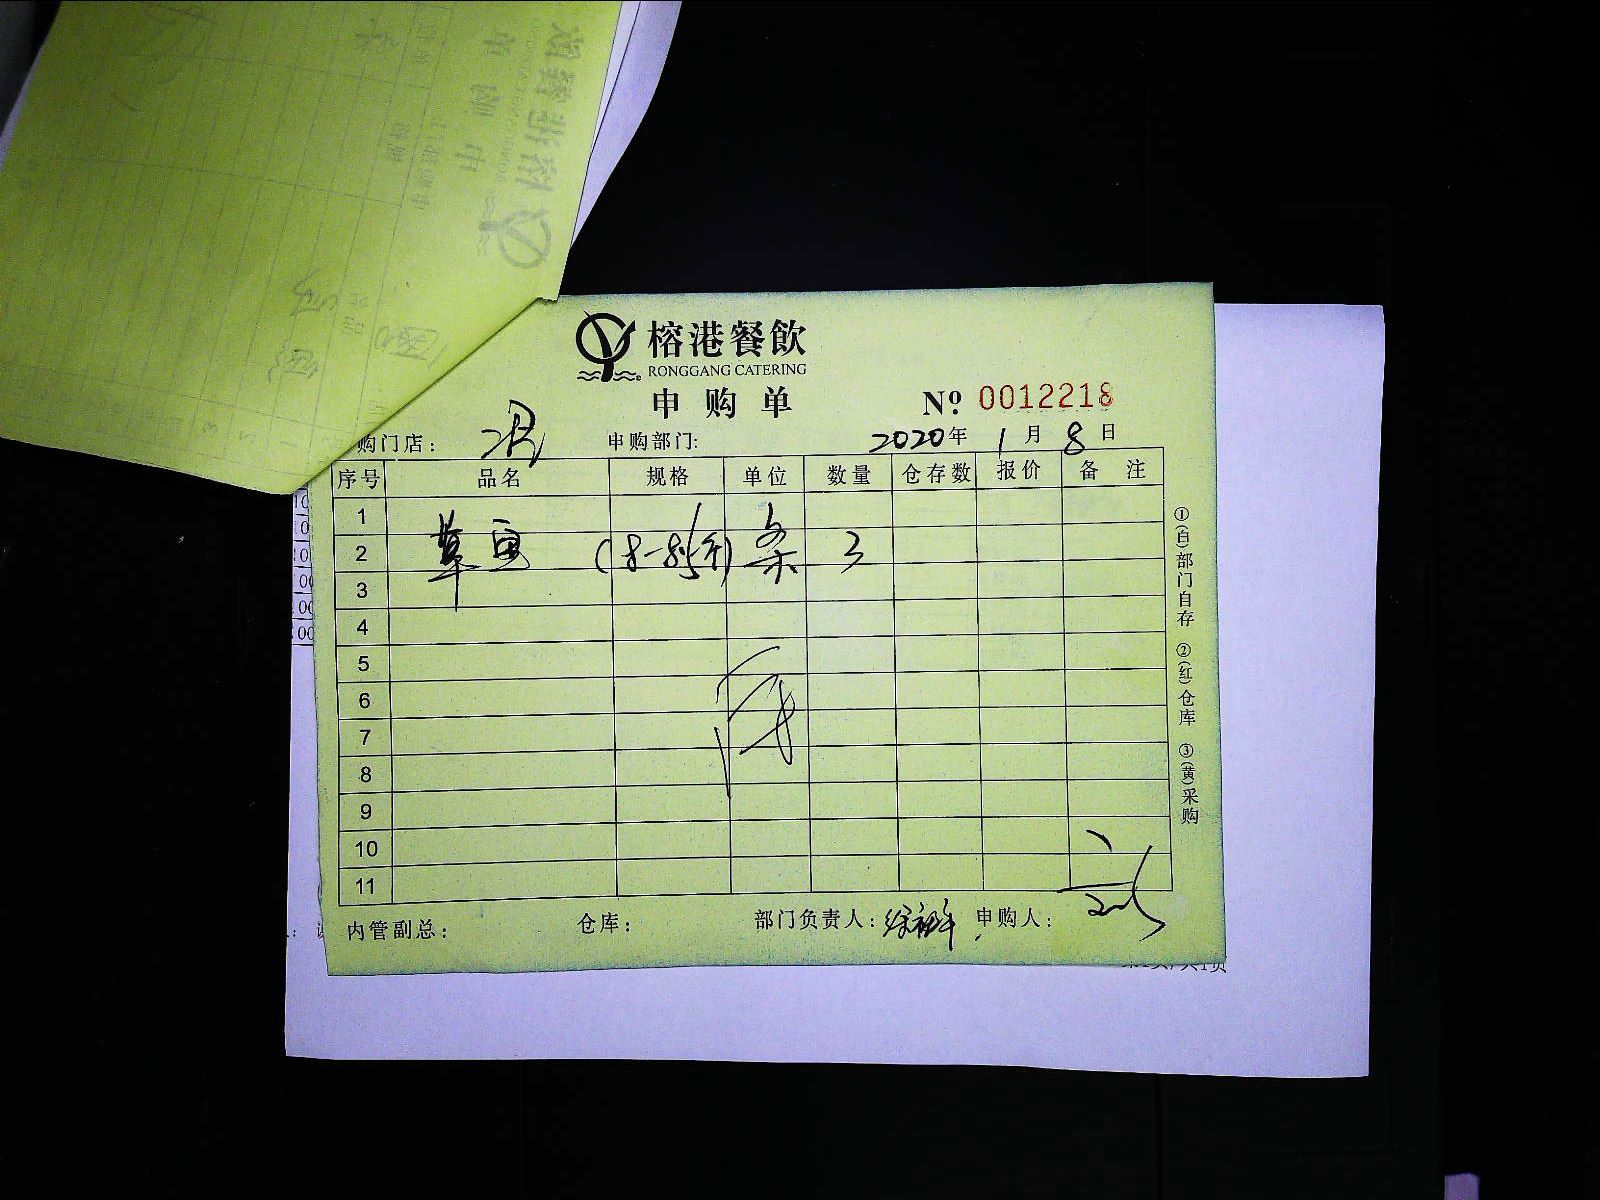 榕港餐飲
RONGGANG CATERING
申购单 Nº 0012218
购门店： 申购部门: 2020年1月8日
序号 品名 规格 单位 数量 仓存数 报价 备注
1
2 草鱼 (8-8.5斤) 条 3
3
4
5
6
7
8
9
10
11
内管副总： 仓库： 部门负责人： 申购人：
①(白)部门自存 ②(红)仓库 ③(黄)采购